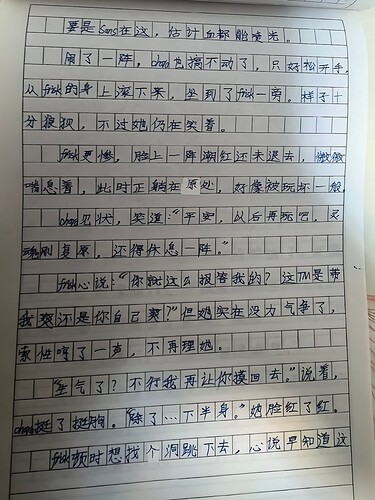 要是Sans在这，估计血都能喷光。
闹了一阵，chara也搞不动了，只好松开手，
从frisk的身上滚下来，坐到了frisk一旁。样子十
分狼狈，不过她仍在笑着。
frisk更惨，脸上一阵潮红还未退去，微微
喘息着，此时正躺在原处，好像被玩坏一般
chara见状，笑道：“平安，以后再玩吧，灵
魂刚复原，还得休息一阵。”
frisk心说：“你就这么报答我的？这TM是带
我爽还是你自己爽？”但她实在没力气争了，
索性哼了一声，不再理她。
“生气了？不行我再让你摸回去。”说着，
chara挺了挺胸。“除了…下半身。”她脸红了红。
frisk顿时想找个洞跳下去，心说早知道这